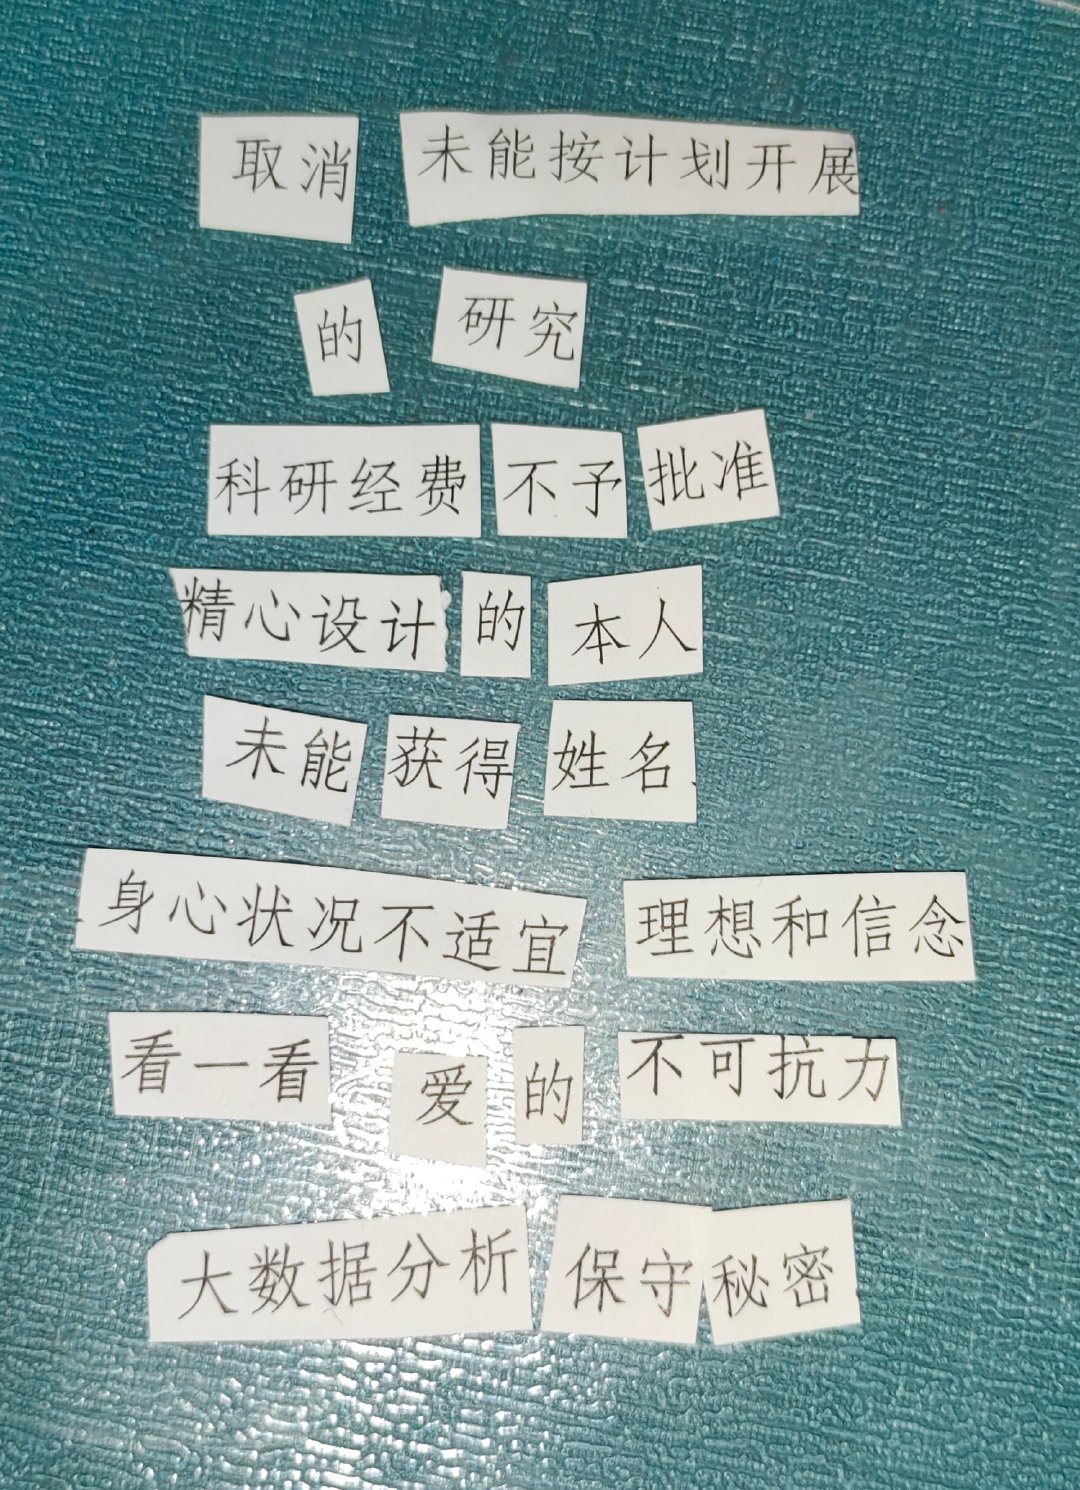 取消 未能按计划开展
的 研究
科研经费 不予 批准
精心设计 的 本人
未能 获得 姓名
身心状况不适宜 理想和信念
看一看 爱 的 不可抗力
大数据分析 保守 秘密